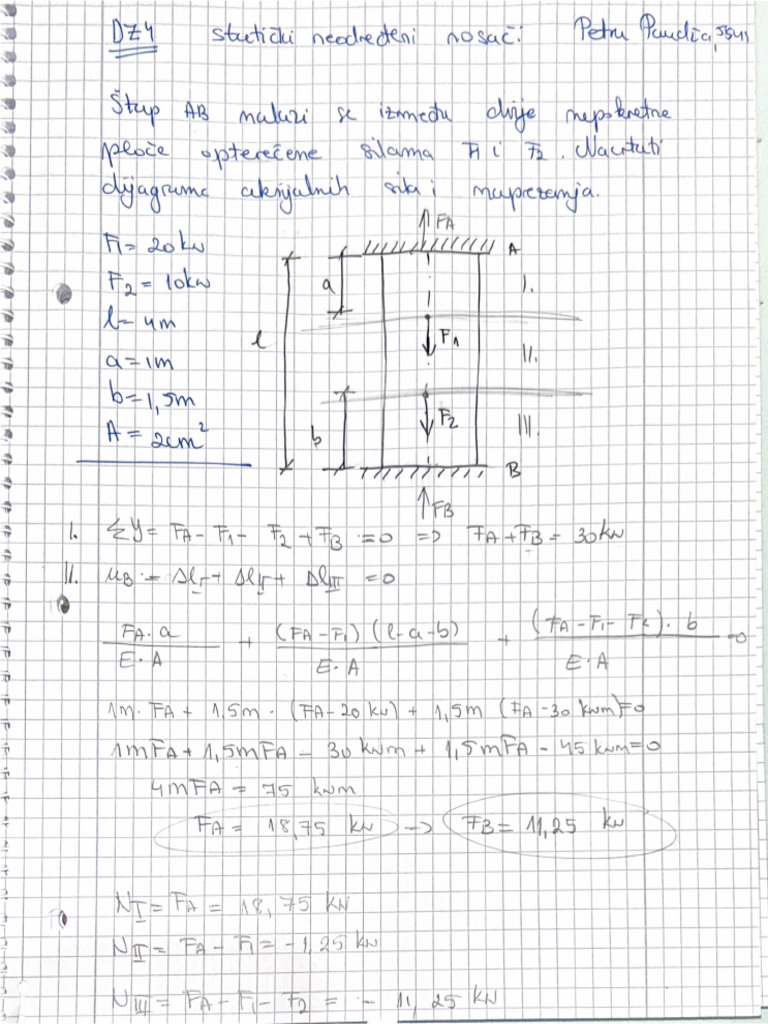 DZ4 statički neodređeni nosač: Petra Pandža,
Štap AB nalazi se između dvije nepokretne
ploče opterećene silama F1 i F2. Nacrtati
dijagrame aksijalnih sila i naprezanja.
FA
F1 = 20kN
A
F2 = 10kN
a
I.
l = 4m
l
F1
a = 1m
II.
b = 1,5m
F2
A = 2cm²
b
III.
B
FB
I. ΣY = FA - F1 - F2 + FB = 0 => FA + FB = 30kN
II. uB = ΔlI + ΔlII + ΔlIII = 0
FA·a / E·A + (FA - F1)(l-a-b) / E·A + (FA - F1 - F2)·b / E·A = 0
1m·FA + 1,5m·(FA - 20 kN) + 1,5m (FA - 30 kNm) = 0
1mFA + 1,5mFA - 30 kNm + 1,5mFA - 45 kNm = 0
4mFA = 75 kNm
FA = 18,75 kN -> FB = 11,25 kN
NI = FA = 18,75 kN
NII = FA - F1 = -1,25 kN
NIII = FA - F1 - F2 = - 11,25 kN